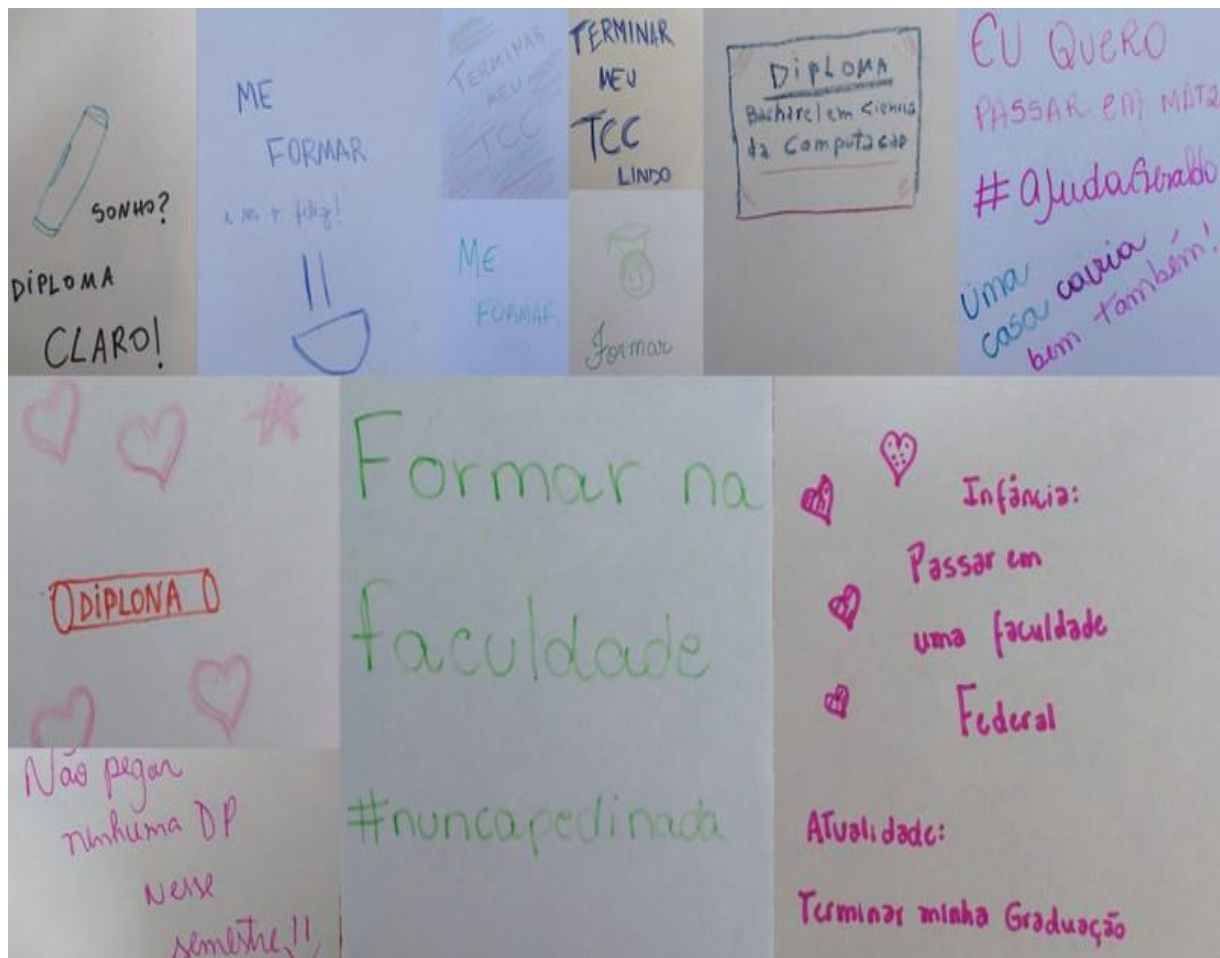 SONHO?
DIPLOMA
CLARO!
ME
FORMAR
TERMINAR
MEU
TCC
ME
FORMAR
TERMINAR
MEU
TCC
LINDO
Formar
DIPLOMA
Bacharel em Ciencia
da Computacao
EU QUERO
PASSAR EM
#AjudaGeraldo
Uma
casa cairia
bem também!
DIPLONA
Não pegar
ninhuma DP
nesse
semestre!!
Formar na
faculdade
#nuncapedinada
Infância:
Passar em
uma faculdade
Federal
Atualidade:
Terminar minha Graduação